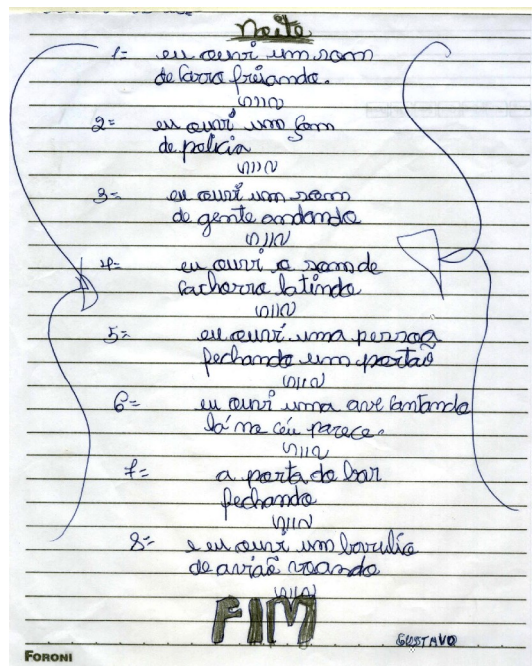 Noite
1= eu ouvi um som
de carro freiando.
2= eu ouvi um som
de policia
3= eu ouvi um som
de gente andando
4= eu ouvi o som de
cachorro latindo
5= eu ouvi uma pessoa
fechando um portaõ
6= eu ouvi uma ave cantando
lá no céu parece.
7= a porta do bar
fechando
8= e eu ouvi um barulio
de aviaõ voando
FIM
GUSTAVO
FORONI